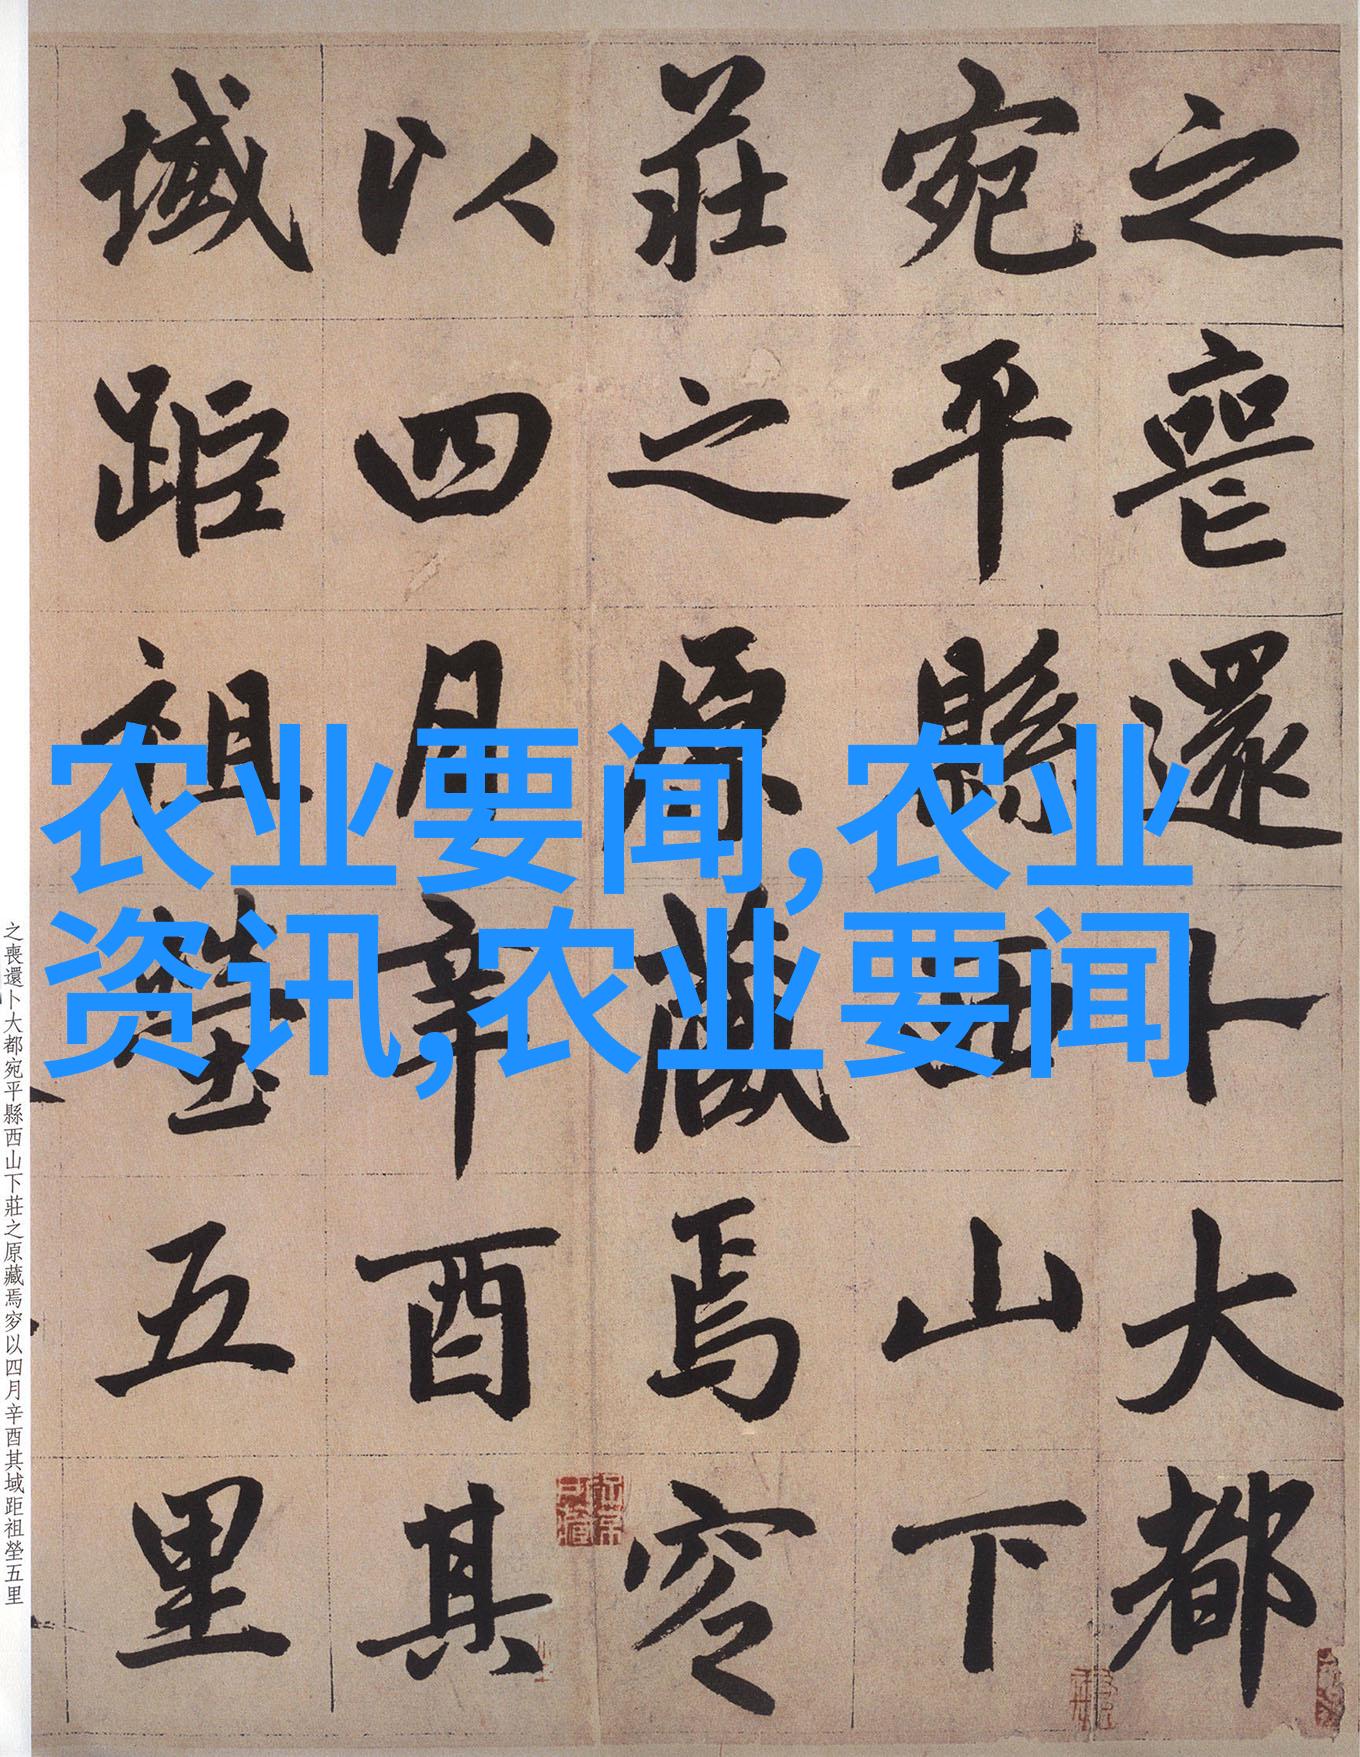 之喪還卜大都
宛平縣西山下
莊之原藏焉穸
以四月辛酉其
域距祖塋五里
农业要闻,农业
资讯,农业要闻
之喪還卜大都宛平縣西山下莊之原藏焉穸以四月辛酉其域距祖塋五里